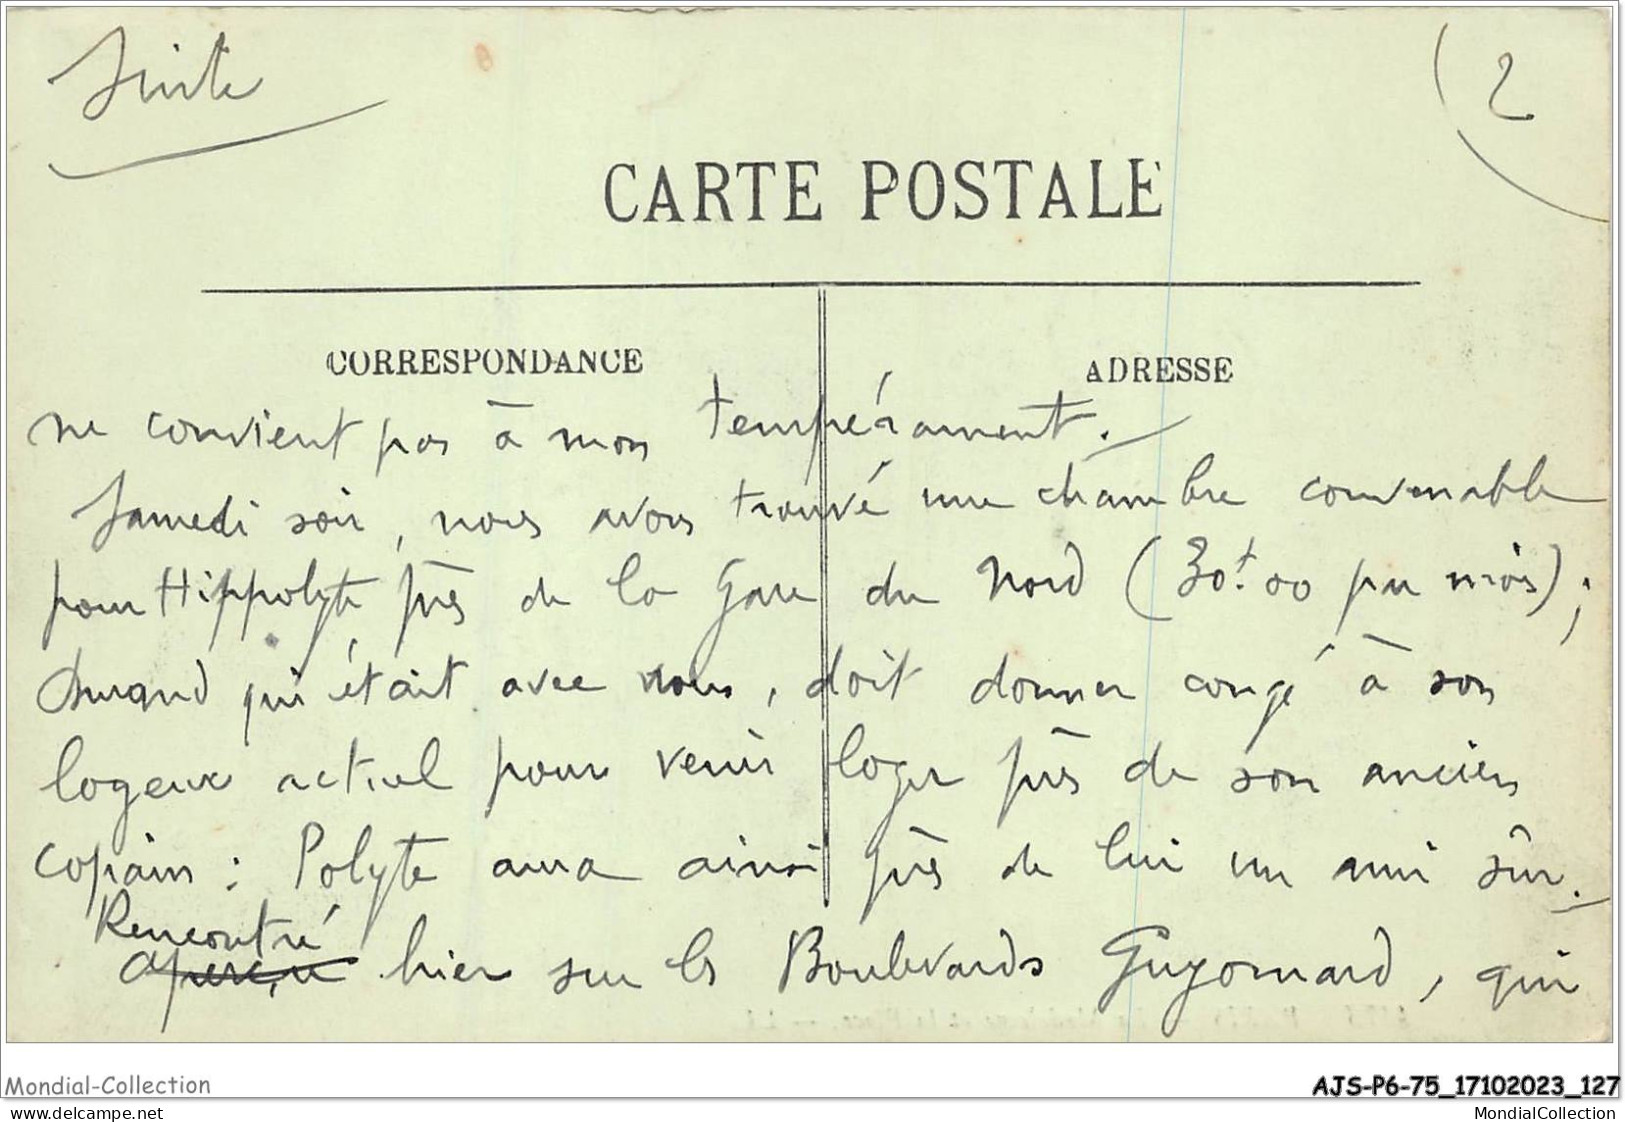 Suite
2
CARTE POSTALE
CORRESPONDANCE
ADRESSE
ne convient pas à mon tempérament.
Samedi soir, nous avons trouvé une chambre convenable
pour Hippolyte, près de la Gare du Nord (30f.00 par mois);
Durand qui était avec nous, doit donner congé à son
logeur actuel pour venir loger près de son ancien
copain : Polyte aura ainsi près de lui un ami sûr.
Rencontré
aperçu hier sur les Boulevards Guyomard, qui
Mondial-Collection
AJS-P6-75_17102023_127
www.delcampe.net
MondialCollection